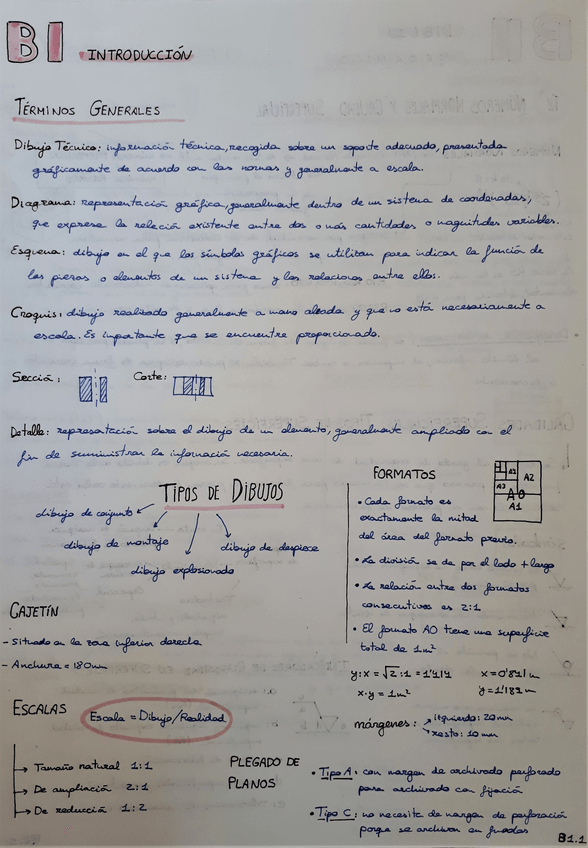 B I INTRODUCCIÓN
TÉRMINOS GENERALES
Dibujo Técnico: información técnica, recogida sobre un soporte adecuado, presentada
gráficamente de acuerdo con las normas y generalmente a escala.
Diagrama: representación gráfica, generalmente dentro de un sistema de coordenadas,
que expresa la relación existente entre dos o más cantidades o magnitudes variables.
Esquema: dibujo en el que los símbolos gráficos se utilizan para indicar la función de
las piezas o elementos de un sistema y las relaciones entre ellos.
Croquis: dibujo realizado generalmente a mano alzada y que no está necesariamente a
escala. Es importante que se encuentre proporcionado.
Sección: Corte:
Detalle: representación sobre el dibujo de un elemento, generalmente ampliado con el
fin de suministrar la información necesaria.
TIPOS DE DIBUJOS
dibujo de conjunto
dibujo de montaje
dibujo explosionado
dibujo de despiece
FORMATOS
A3
A2
A0
A1
• Cada formato es
exactamente la mitad
del área del formato previo.
• La división se da por el lado + largo
• La relación entre dos formatos
consecutivos es 2:1
• El formato A0 tiene una superficie
total de 1m²
y:x = √2:1 = 1'414 x = 0'841 m
x·y = 1m² y = 1'189 m
márgenes: izquierdo: 20 mm
resto: 10 mm
CAJETÍN
- Situado en la zona inferior derecha
- Anchura = 180 mm
ESCALAS
Escala = Dibujo/Realidad
Tamaño natural 1:1
De ampliación 2:1
De reducción 1:2
PLEGADO DE
PLANOS
• Tipo A: con margen de archivado perforado
para archivado con fijación
• Tipo C: no necesita de margen de perforación
porque se archivan en fundas
B1.1